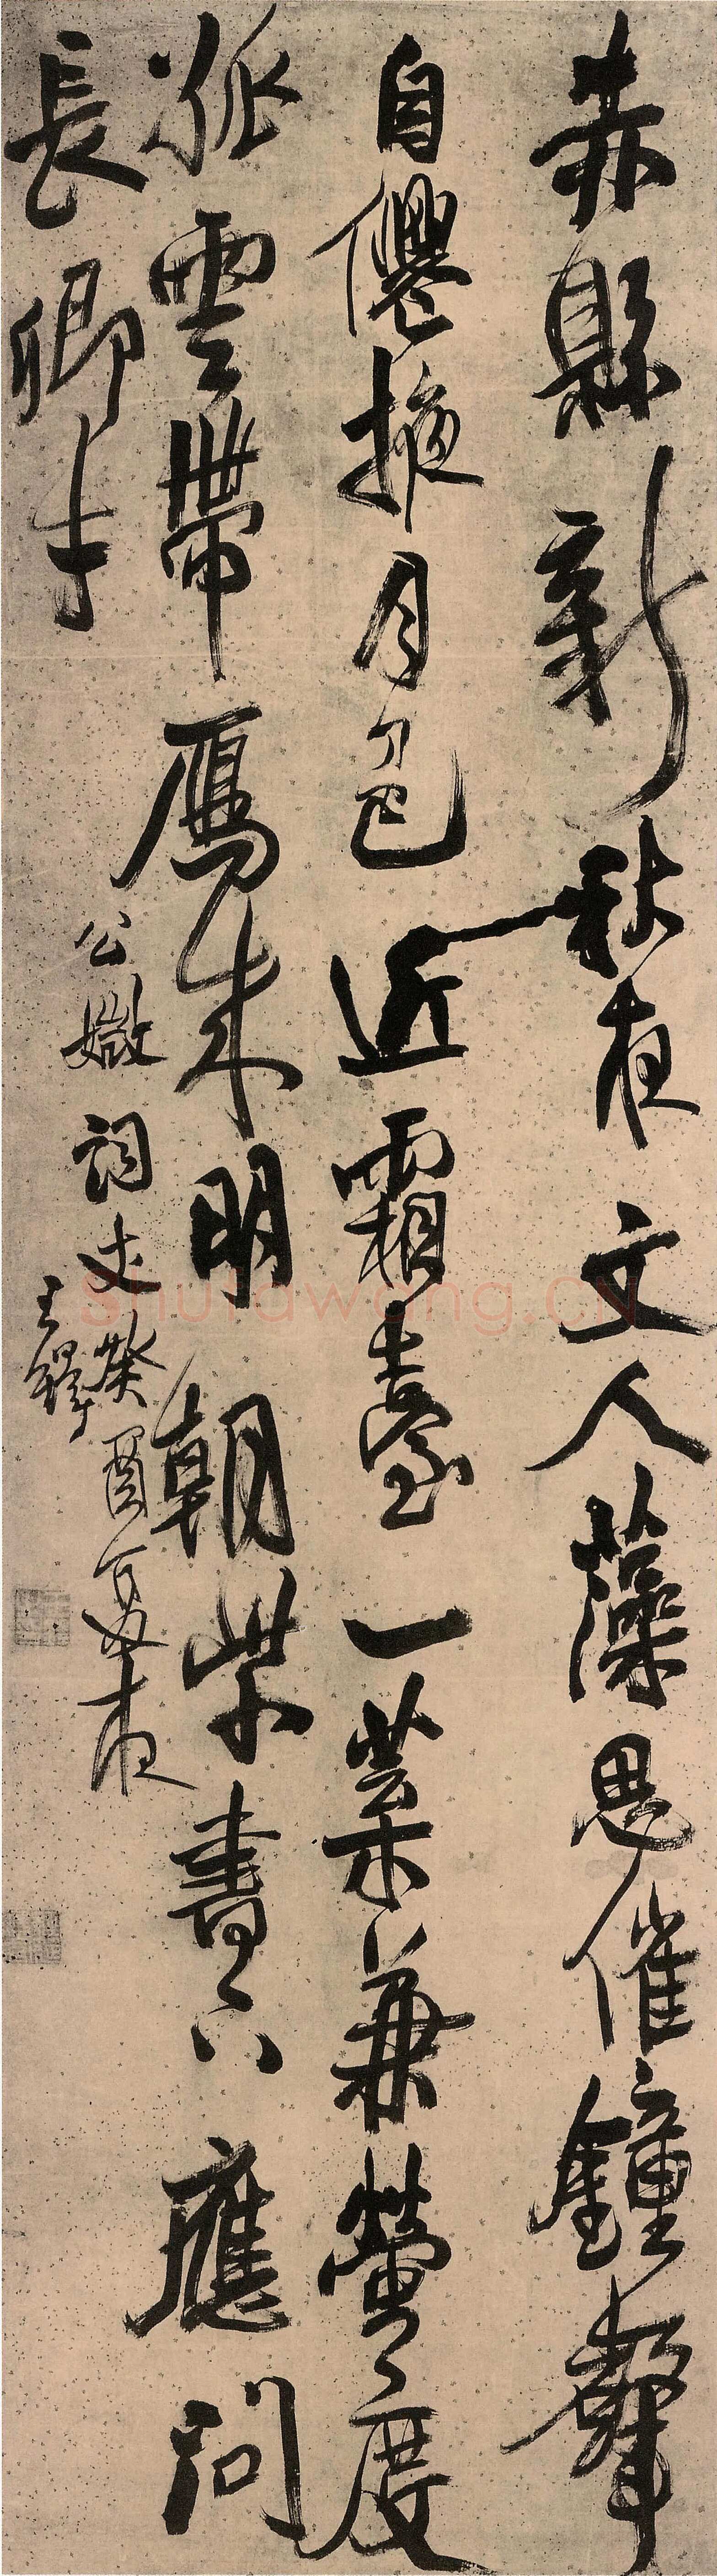 赤縣新秋夜文人藻思催鐘聲
自僊掖月色近霜臺一葉兼螢度
孤雲帶鴈来明朝紫書下應問
長卿才
公媺詞丈癸酉夏夜
王鐸
Shufawang.CN